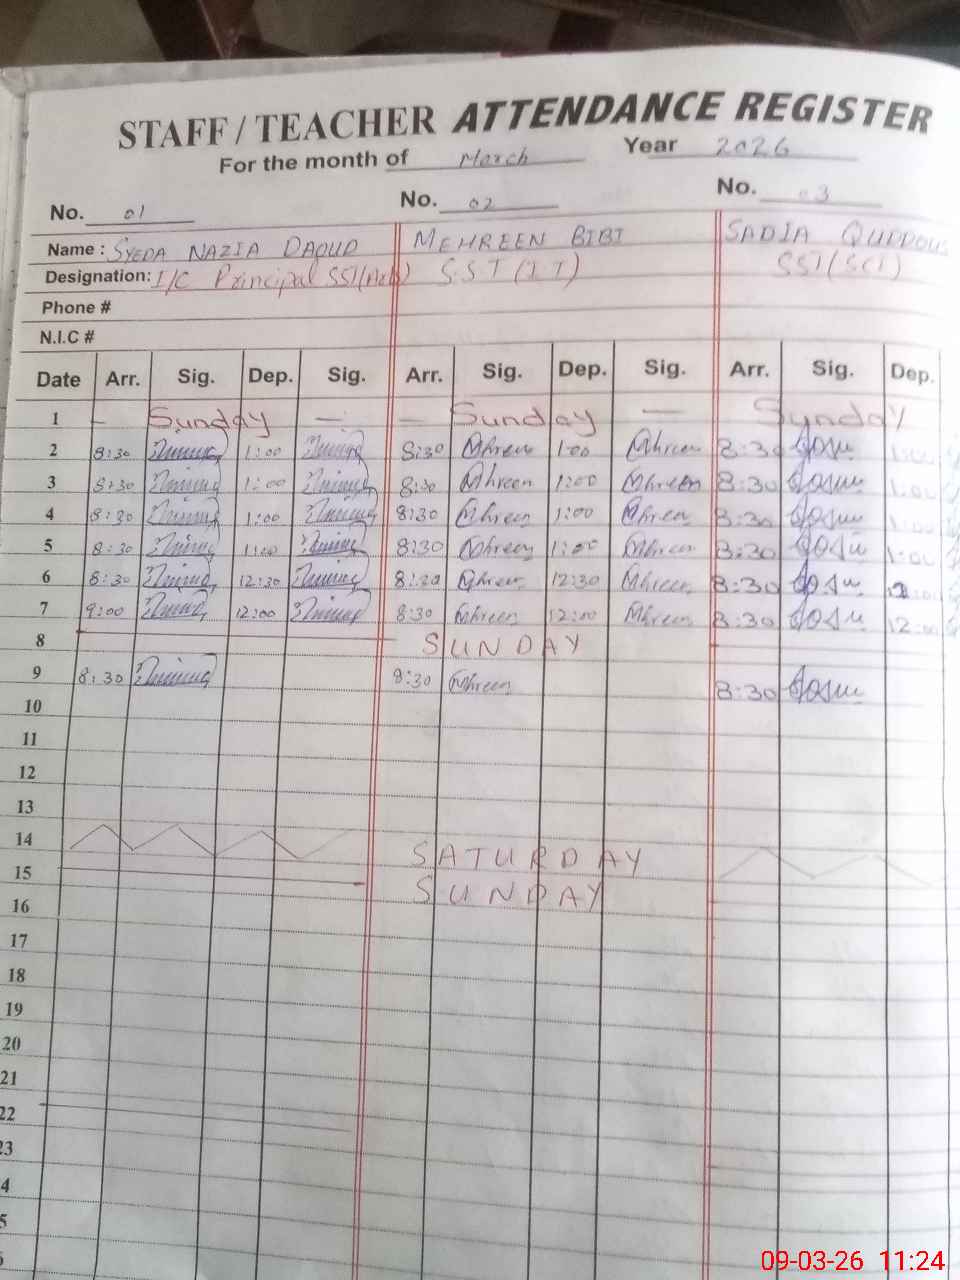 STAFF / TEACHER ATTENDANCE REGISTER
For the month of March Year 2026
No. 01 No. 02 No. 03
Name : SYEDA NAZIA DAOUD MEHREEN BIBI SADIA QUDDOUS
Designation: I/C Principal SST(Arts) S.S.T (I T) SST(SCI)
Phone #
N.I.C #
Date Arr. Sig. Dep. Sig. Arr. Sig. Dep. Sig. Arr. Sig. Dep.
1 - Sunday - - Sunday - Sunday
2 8:30 1:00 8:30 Mhreen 1:00 Mhreen 8:30 1:00
3 8:30 1:00 8:30 Mhreen 1:00 Mhreen 8:30 1:00
4 8:30 1:00 8:30 Mhreen 1:00 Mhreen 8:30 1:00
5 8:30 1:00 8:30 Mhreen 1:00 Mhreen 8:30 1:00
6 8:30 12:30 8:30 Mhreen 12:30 Mhreen 8:30
7 9:00 12:00 8:30 Mhreen 12:00 Mhreen 8:30 12:00
8 SUNDAY
9 8:30 8:30 Mhreen 8:30
10
11
12
13
14 SATURDAY
15 SUNDAY
16
17
18
19
20
21
22
23
4
5
6
09-03-26 11:24